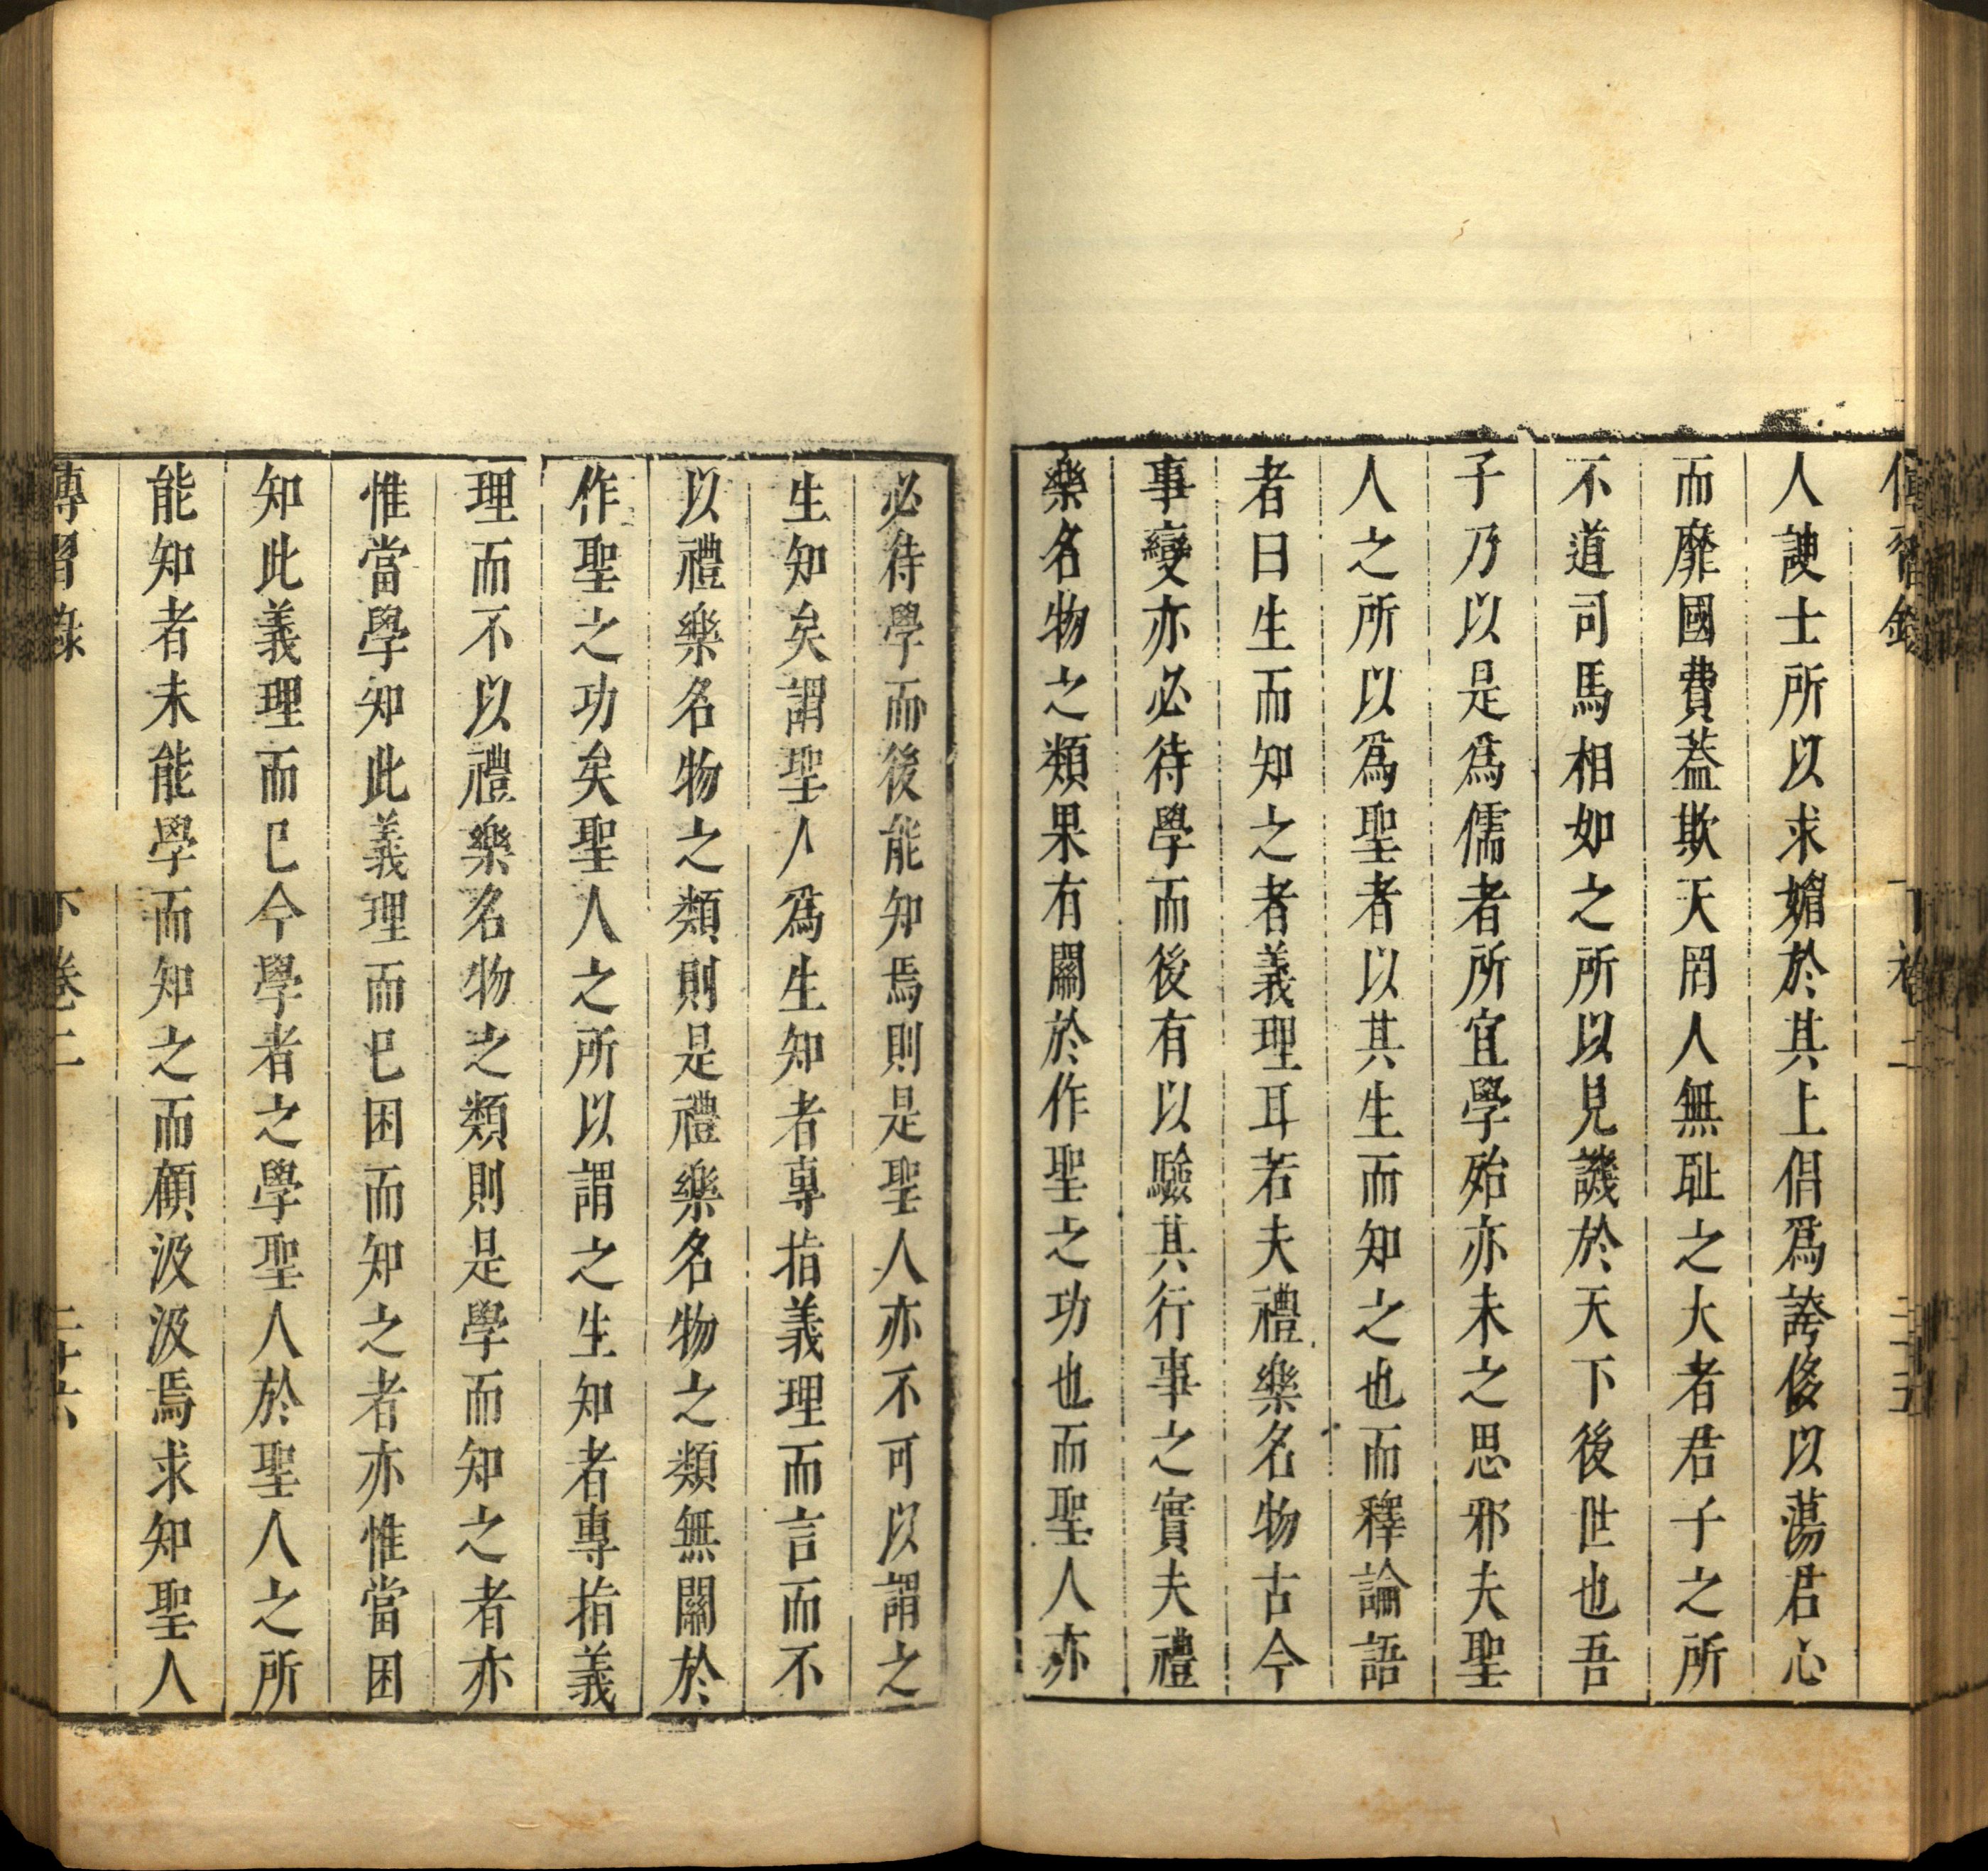 傳習錄 下卷二 二十五
人諛士所以求媚於其上倡爲誇侈以蕩君心
而靡國費葢欺天罔人無恥之大者君子之所
不道司馬相如之所以見譏於天下後世也吾
子乃以是爲儒者所宜學殆亦未之思邪夫聖
人之所以爲聖者以其生而知之也而釋論語
者曰生而知之者義理耳若夫禮樂名物古今
事變亦必待學而後有以驗其行事之實夫禮
樂名物之類果有關於作聖之功也而聖人亦
必待學而後能知焉則是聖人亦不可以謂之
生知矣謂聖人爲生知者專指義理而言而不
以禮樂名物之類則是禮樂名物之類無關於
作聖之功矣聖人之所以謂之生知者專指義
理而不以禮樂名物之類則是學而知之者亦
惟當學知此義理而已困而知之者亦惟當困
知此義理而已今學者之學聖人於聖人之所
能知者未能學而知之而顧汲汲焉求知聖人
傳習錄 下卷二 二十六